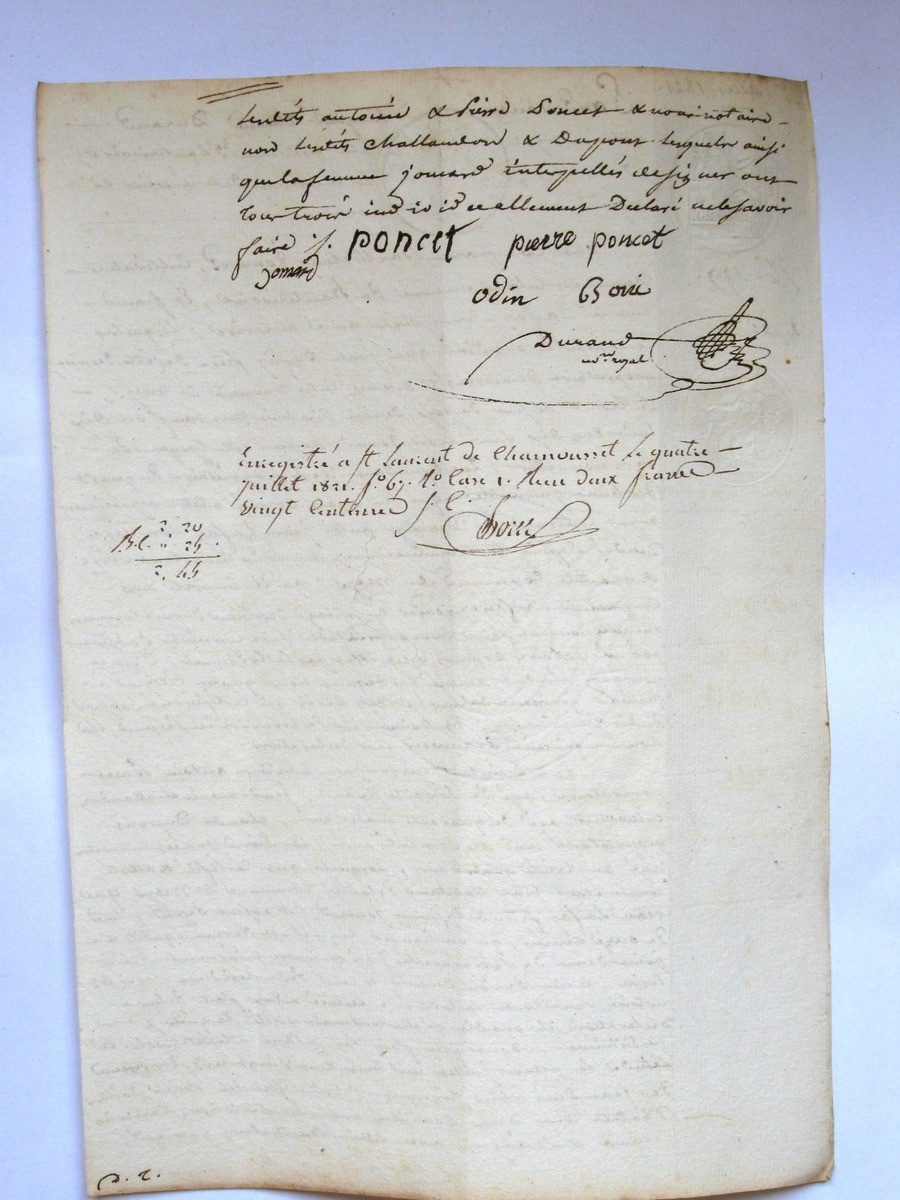 lesdits antoine & Pierre Poncet & nous notaire
non lesdits Challandon & Dupont lesquels ainsi
que la femme jomard interpellés de signer ont
tous trois individuellement Déclaré ne le savoir
faire j. poncet pierre poncet
Jomard
odin
Durand
no.re royal
Enregistré a st Laurent de Chamousset le quatre
juillet 1821. fo. 67. Vo. Case 1. Recu deux francs
vingt Centimes
2 20
25
2, 45
p. 2.